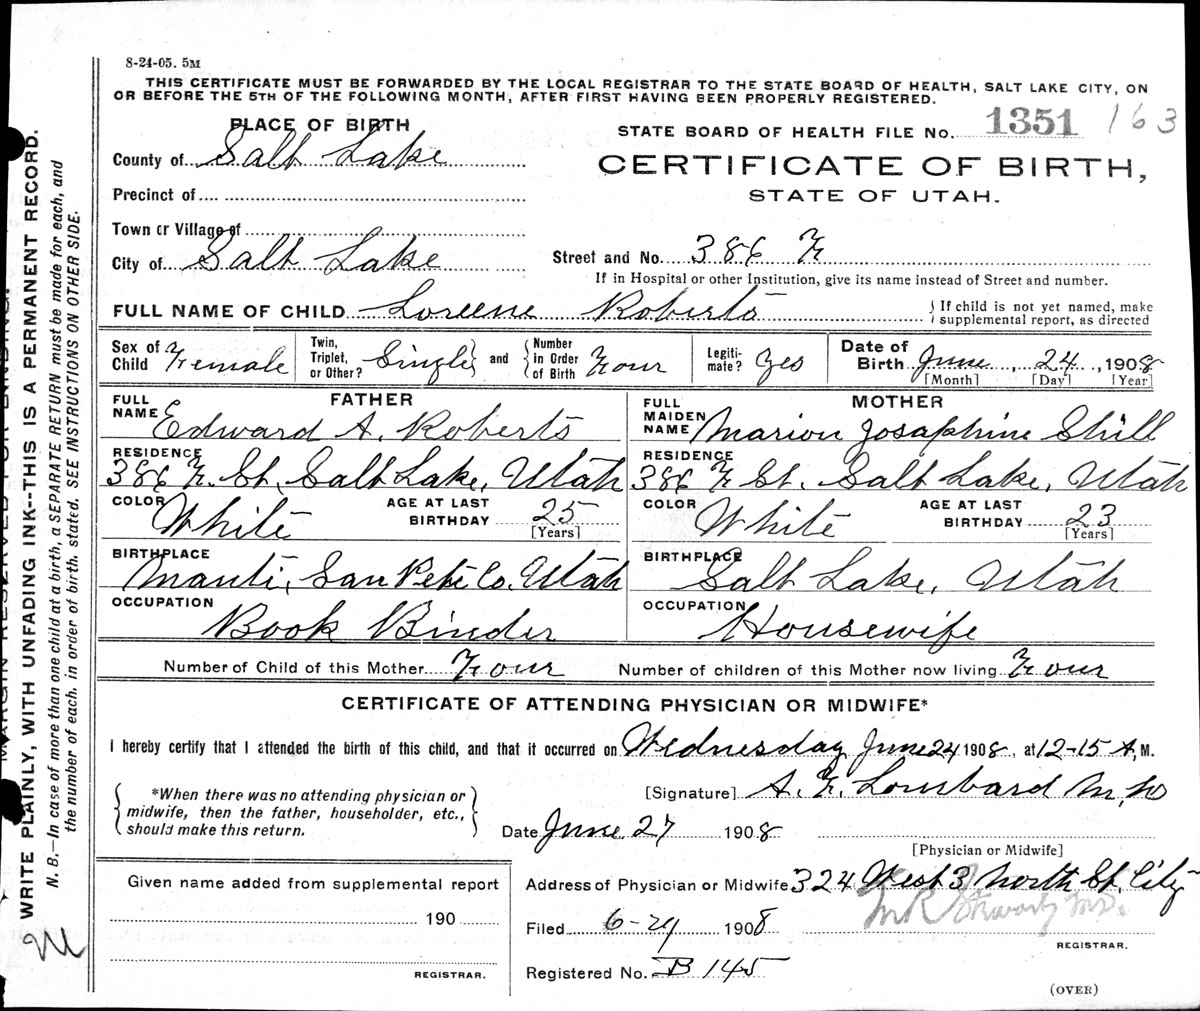 8-24-05. 5M
THIS CERTIFICATE MUST BE FORWARDED BY THE LOCAL REGISTRAR TO THE STATE BOARD OF HEALTH, SALT LAKE CITY, ON
OR BEFORE THE 5TH OF THE FOLLOWING MONTH, AFTER FIRST HAVING BEEN PROPERLY REGISTERED.
PLACE OF BIRTH
STATE BOARD OF HEALTH FILE No. 1351 163
County of Salt Lake
CERTIFICATE OF BIRTH,
STATE OF UTAH.
Precinct of
Town or Village of
City of Salt Lake Street and No. 386 F
If in Hospital or other Institution, give its name instead of Street and number.
FULL NAME OF CHILD Loreene Roberts { If child is not yet named, make
supplemental report, as directed
Sex of Child Female Twin, Triplet, or Other? Single } and { Number in Order of Birth Four Legitimate? Yes Date of Birth June, 24, 1908
[Month] [Day] [Year]
FATHER MOTHER
FULL NAME Edward A. Roberts FULL MAIDEN NAME Marion Josaphine Still
RESIDENCE 386 F. St. Salt Lake, Utah RESIDENCE 386 F St. Salt Lake, Utah
COLOR White AGE AT LAST BIRTHDAY 25 [Years] COLOR White AGE AT LAST BIRTHDAY 23 [Years]
BIRTHPLACE Manti, San Pete Co. Utah BIRTHPLACE Salt Lake, Utah
OCCUPATION Book Binder OCCUPATION Housewife
Number of Child of this Mother Four Number of children of this Mother now living Four
CERTIFICATE OF ATTENDING PHYSICIAN OR MIDWIFE*
I hereby certify that I attended the birth of this child, and that it occurred on Wednesday June 24 1908, at 12-15 A. M.
{ *When there was no attending physician or
midwife, then the father, householder, etc.,
should make this return. }
[Signature] A. F. Lombard M, D
Date June 27 1908
[Physician or Midwife]
Given name added from supplemental report
190
REGISTRAR.
Address of Physician or Midwife 324 West 3 North St, City
Filed 6-29 1908
REGISTRAR.
Registered No. B 145
(OVER)
WRITE PLAINLY, WITH UNFADING INK--THIS IS A PERMANENT RECORD.
N. B.—In case of more than one child at a birth, a SEPARATE RETURN must be made for each, and
the number of each, in order of birth, stated. SEE INSTRUCTIONS ON OTHER SIDE.